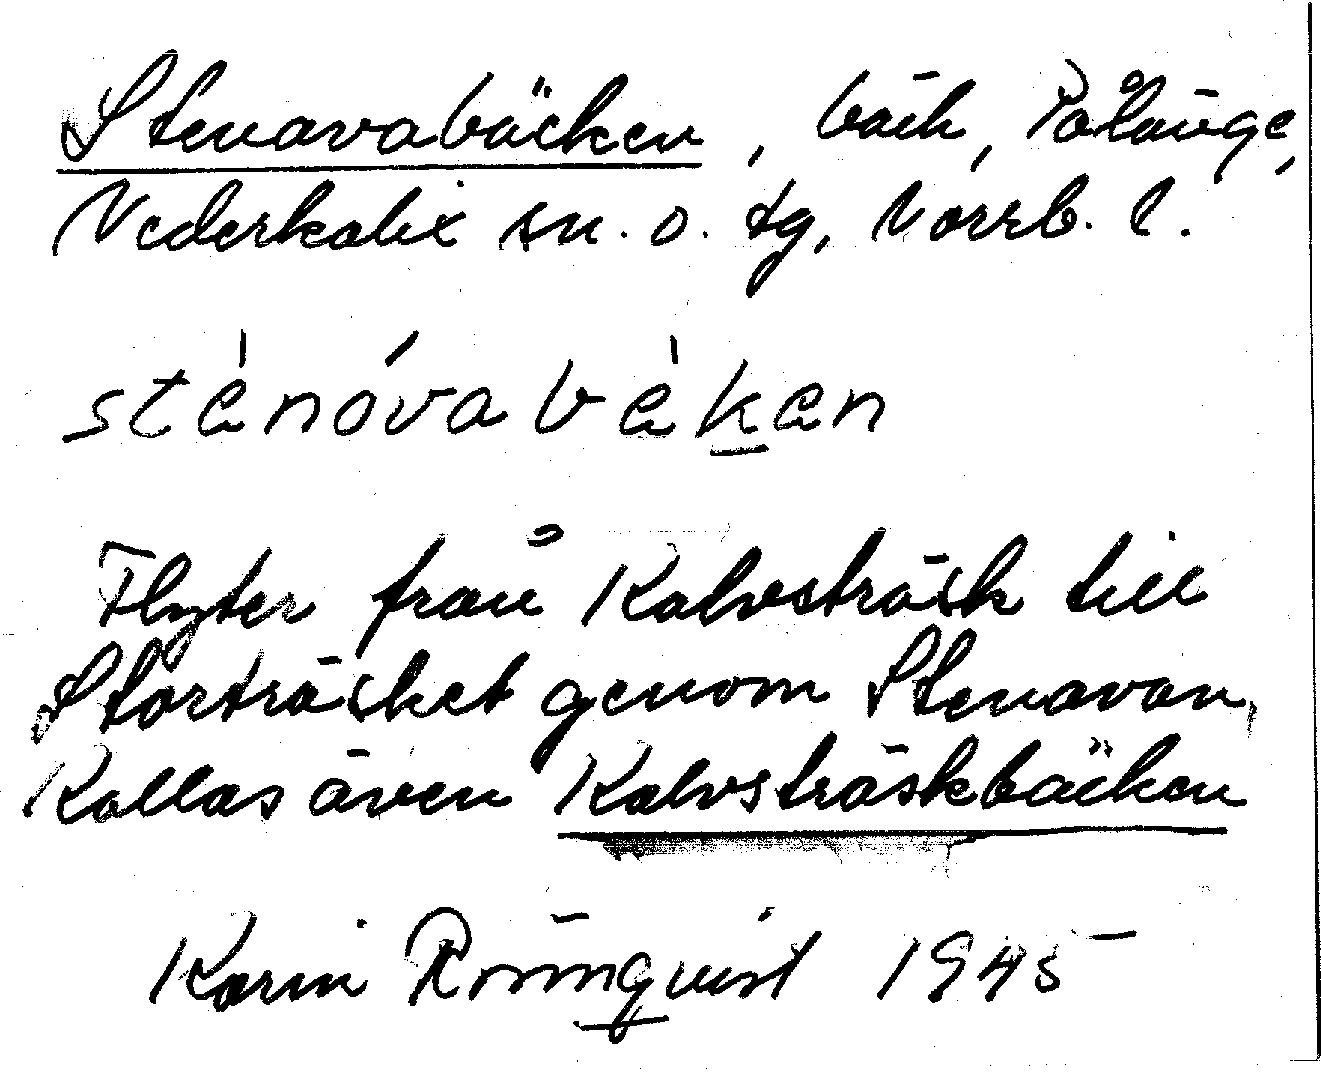 Stenavabäcken, bäck, Pålänge,
Nederkalix sn. o. tg, Norrb. l.
Flyter från Kalvsträsk till
Storträsket genom Stenavan,
Kallas även Kalvsträskbäcken
Karin Rönnqvist 1945